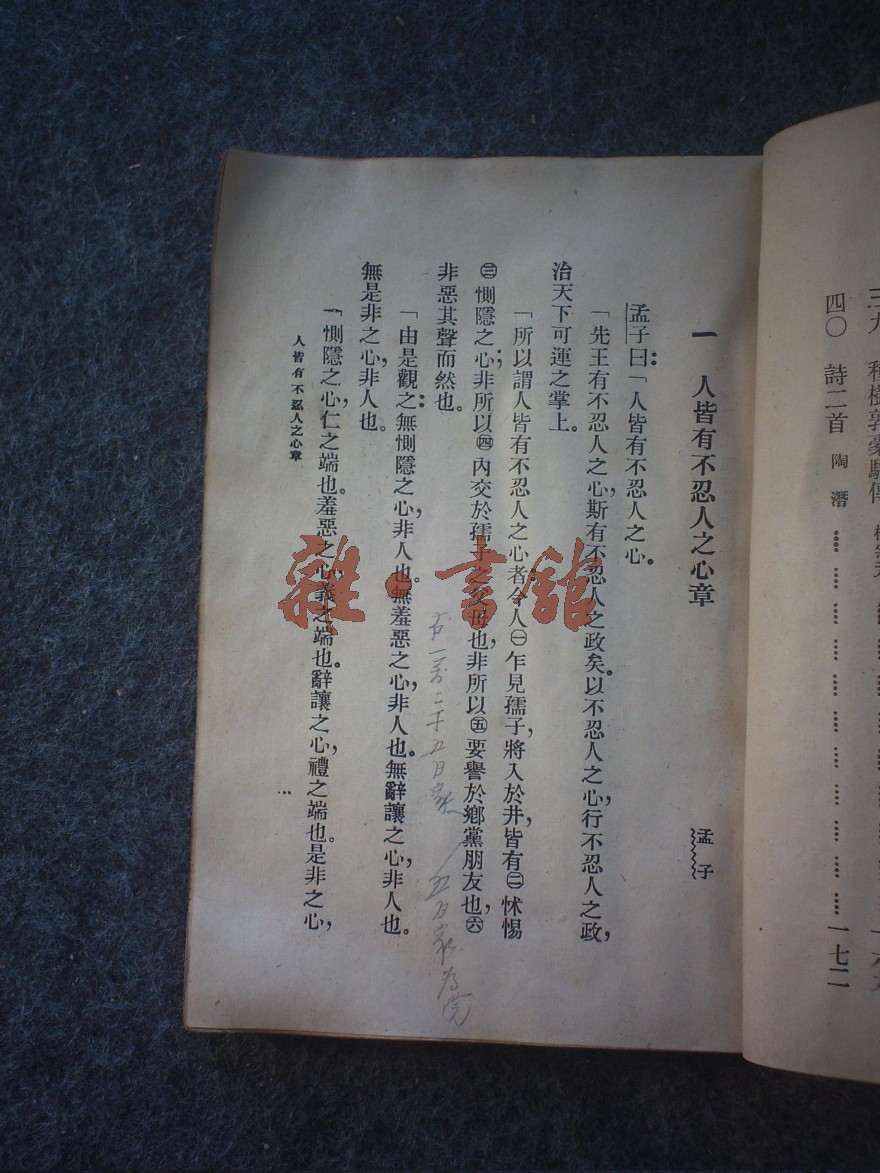 四〇 詩二首 陶潛 一七二
一 人皆有不忍人之心章 孟子
孟子曰：「人皆有不忍人之心。
「先王有不忍人之心，斯有不忍人之政矣。以不忍人之心，行不忍人之政，
治天下可運之掌上。
「所以謂人皆有不忍人之心者：今人㊀乍見孺子，將入於井，皆有㊁怵惕
㊂惻隱之心；非所以㊃內交於孺子之父母也，非所以㊄要譽於鄉黨朋友也，㊅
非惡其聲而然也。
「由是觀之：無惻隱之心，非人也。無羞惡之心，非人也。無辭讓之心，非人也。
無是非之心，非人也。
「惻隱之心，仁之端也。羞惡之心，義之端也。辭讓之心，禮之端也。是非之心，
人皆有不忍人之心章
雜·書館